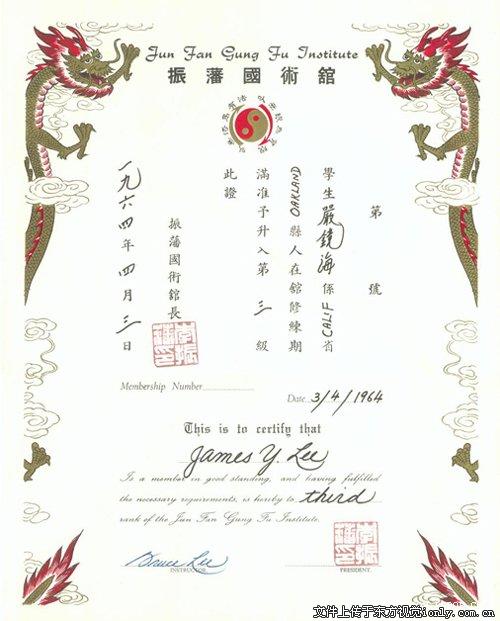 Jun Fan Gung Fu Institute
振藩國術舘
第 號
學生嚴鏡海係CALIF省
OAKLAND縣人在舘修練期
滿准予升入第三級
此證
振藩國術舘長
一九六四年四月三日
Membership Number
Date 3/4/1964
This is to certify that
James Y. Lee
Is a member in good standing, and having fulfilled
the necessary requirements, is hereby to third
rank of the Jun Fan Gung Fu Institute.
Bruce Lee
INSTRUCTOR
PRESIDENT.
文件上传于东方视觉ionly.com.cn